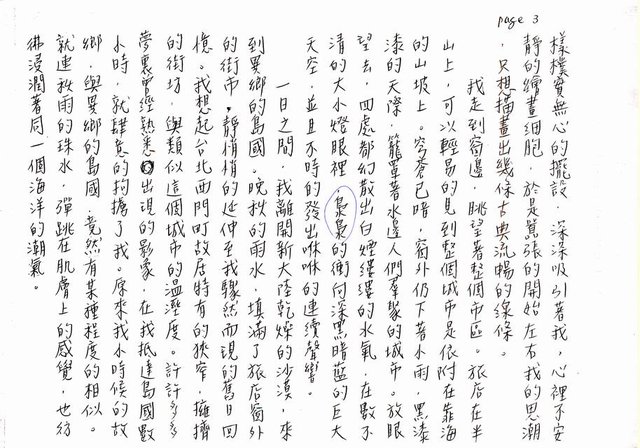 page 3
樣樸實無心的擺設,深深吸引著我,心裡不安
靜的繪畫細胞,於是囂張的開始左右我的思潮
,只想描畫出幾條古典流暢的線條。
我走到窗邊,眺望著整個市區。旅店在半
山上,可以輕易的見到整個城市是依附在靠海
的山坡上。穹蒼已暗,窗外仍下著小雨,黑漆
漆的天際,籠罩著水邊人們羣聚的城市。放眼
望去,四處都幻散出白煙縷縷的水氣,在數不
清的大小燈眼裡,裊裊的衝向深黑暗藍的巨大
天空,並且不時的發出咻咻的連續聲響。
一日之間,我離開新大陸乾燥的沙漠,來
到異鄉的島國。晚秋的雨水,填滿了旅店窗外
的街市,靜悄悄的延伸至我驟然而現的舊日回
憶。我想起台北西門町故居特有的狹窄,擁擠
的街坊,與類似這個城市的溫溼度。許許多多
夢裏曾經熟悉出現的影象,在我抵達島國數
小時,就肆意的拘擒了我。原來我小時候的故
鄉,與異鄉的島國,竟然有某種程度的相似。
就連秋雨的珠水,彈跳在肌膚上的感覺,也彷
彿浸潤著同一個海洋的潮氣。